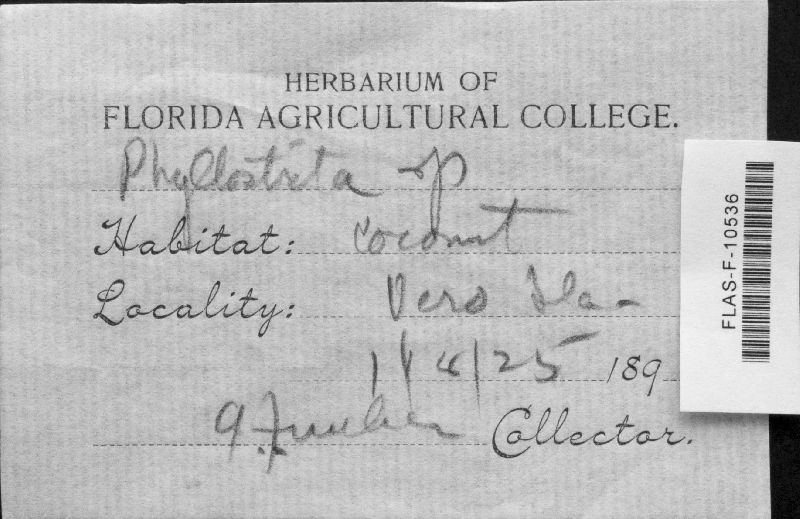 HERBARIUM OF
FLORIDA AGRICULTURAL COLLEGE.
Phyllostrita sp
Habitat: Coconut
Locality: Vero Fla-
/25 189
Collector.
FLAS-F-10536